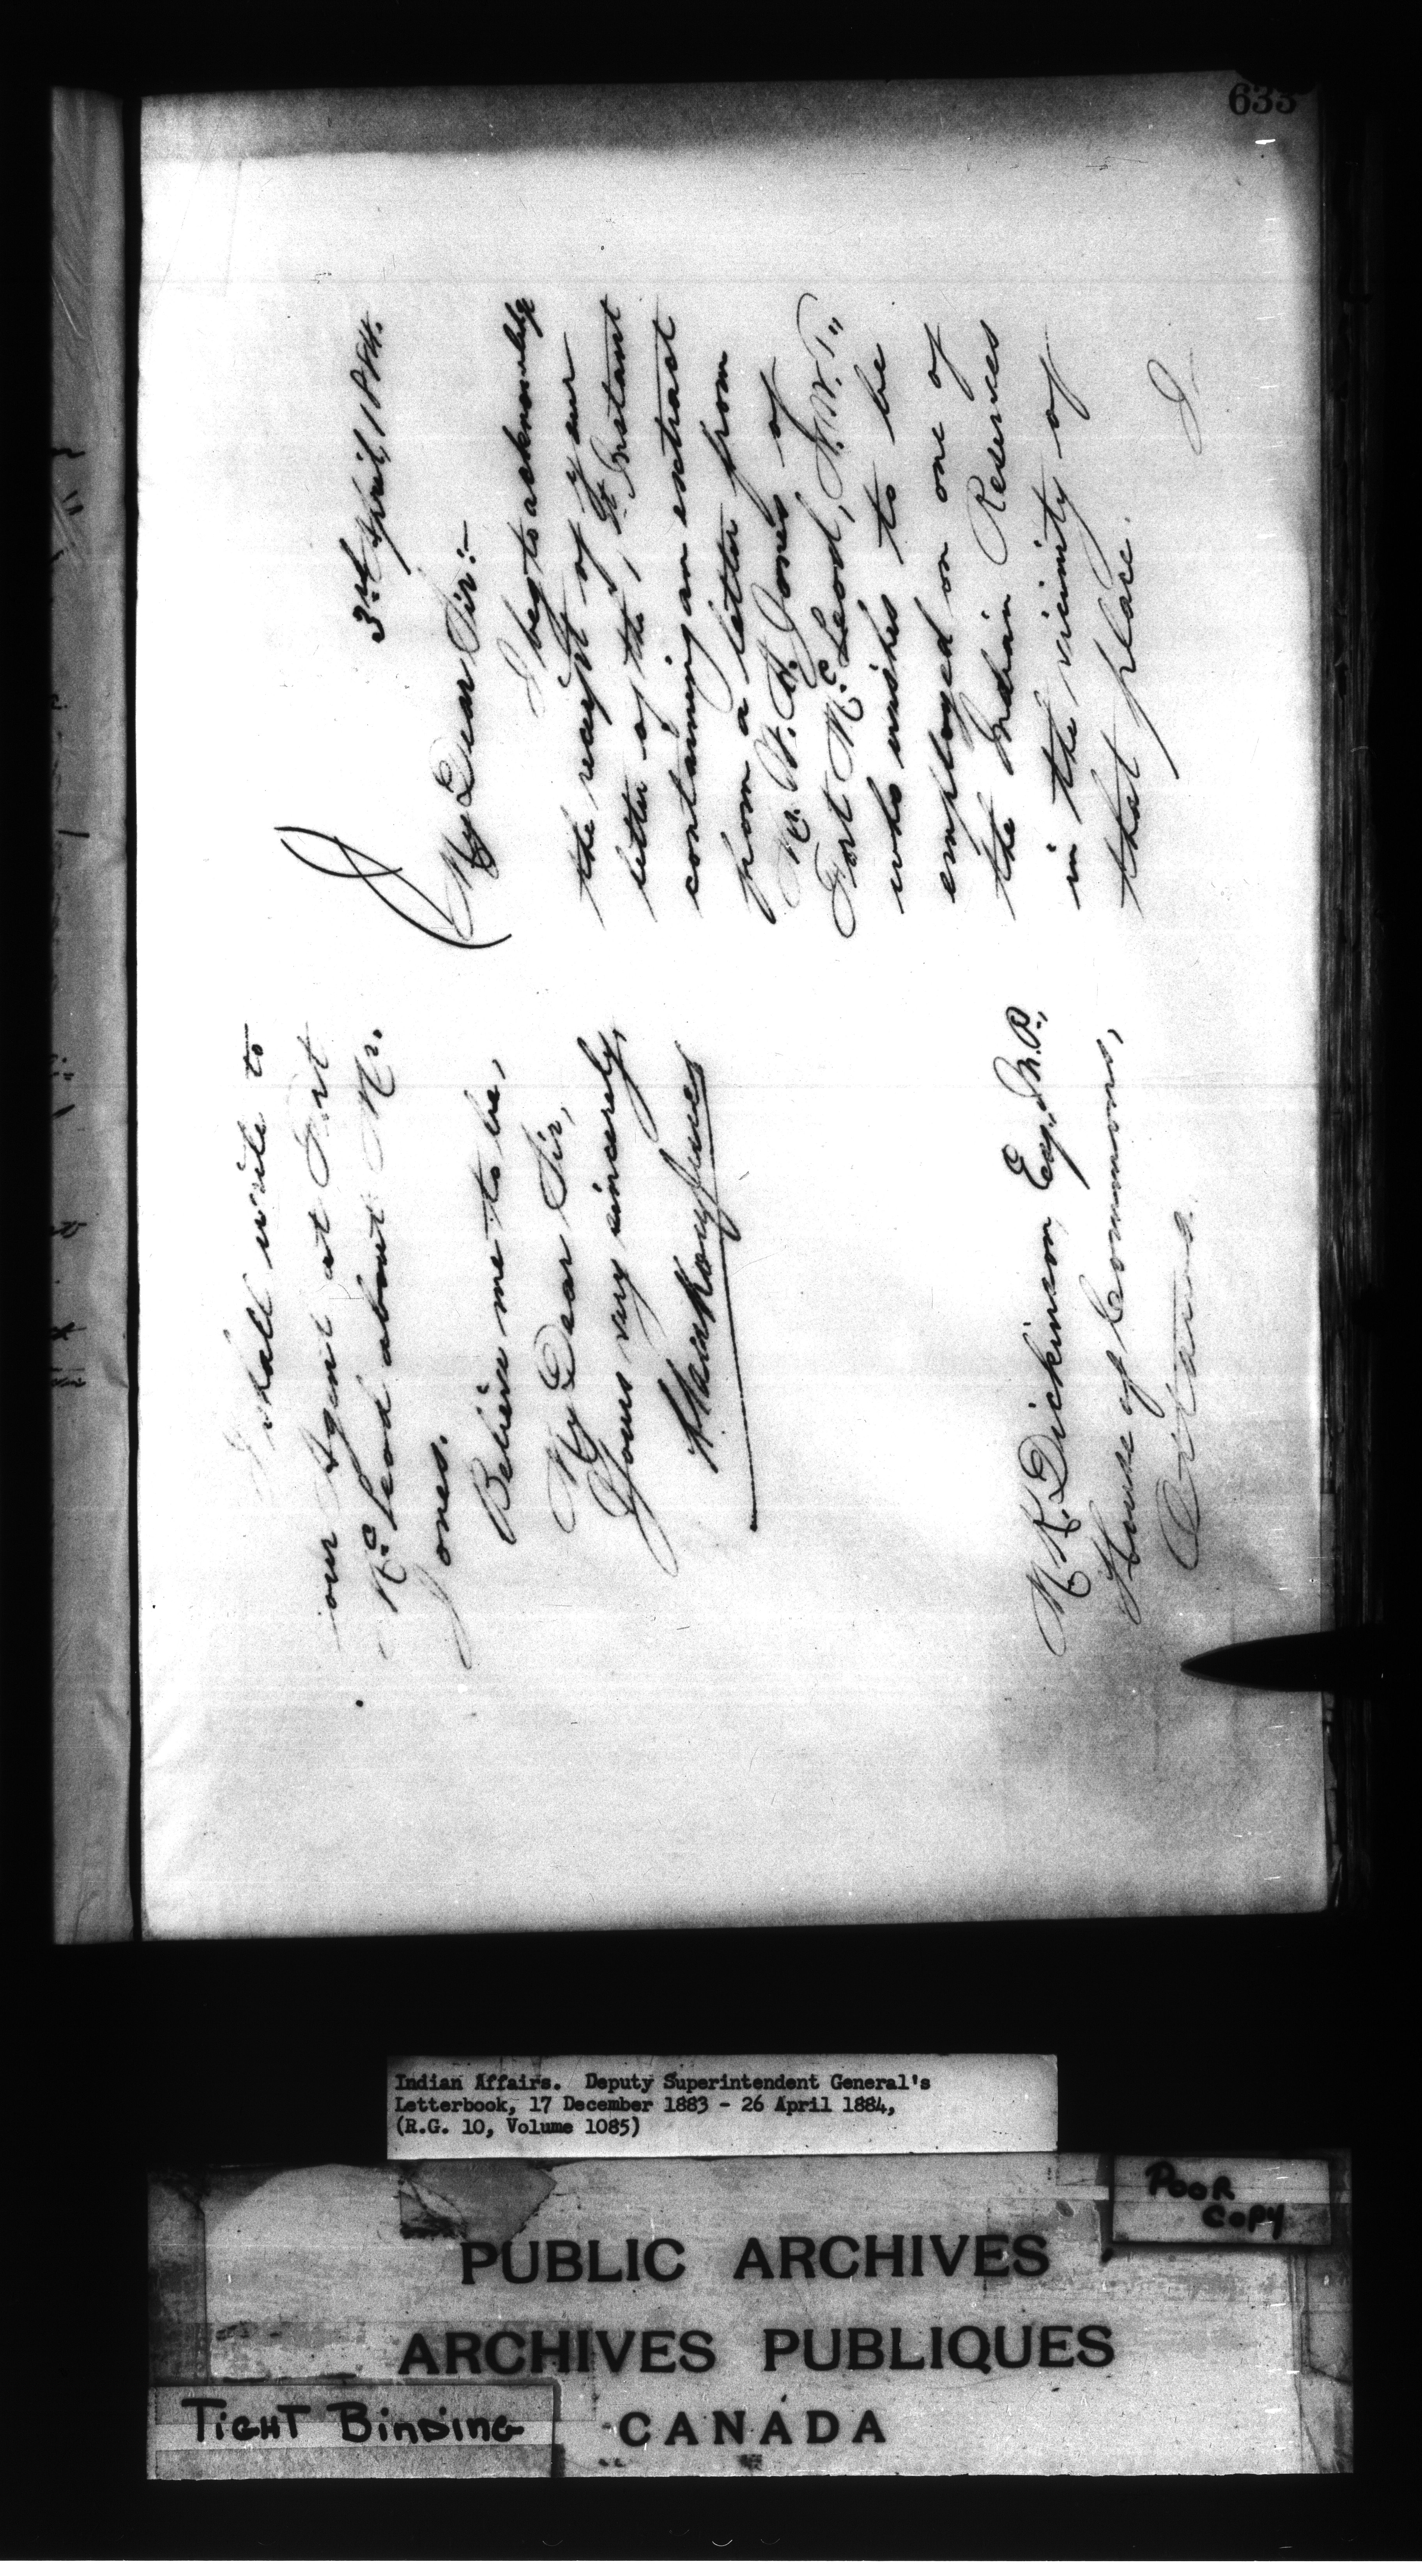 633
3rd April, 1884.
My Dear Sir:-
I beg to acknowledge
the receipt of your
letter of the 1st Instant
containing an extract
from a letter from
Mr. W. H. Jones of
Fort McLeod, N.W.T.,
who wishes to be
employed on one of
the Indian Reserves
in the vicinity of
that place.
I
I shall write to
our Agent at Fort
McLeod about Mr.
Jones.
Believe me to be,
My Dear Sir,
Yours very sincerely,
M. K. Dickinson, Esq., M.P.,
House of Commons,
Ottawa.
Indian Affairs. Deputy Superintendent General's
Letterbook, 17 December 1883 - 26 April 1884,
(R.G. 10, Volume 1085)
POOR
COPY
PUBLIC ARCHIVES
ARCHIVES PUBLIQUES
CANADA
TIGHT BINDING